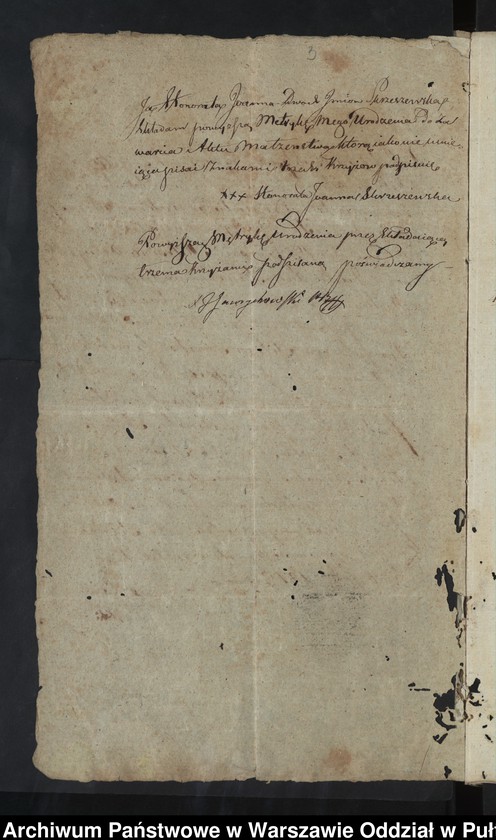 3
Ja Honorata Joanna Dwoch Imion Skrzeszewska
składam powyższą Metrykę Mego Urodzenia do Za
warcia Aktu Małżenstwa którą iako nie umie
iąca pisać Znakami trzech Krzyżow podpisuię
xxx Honorata Joanna Skrzeszewska
Powyższą Metrykę Urodzenia przez Składaiącą
trzema krzyżami podpisaną poświadczamy
Archiwum Państwowe w Warszawie Oddział w Puł